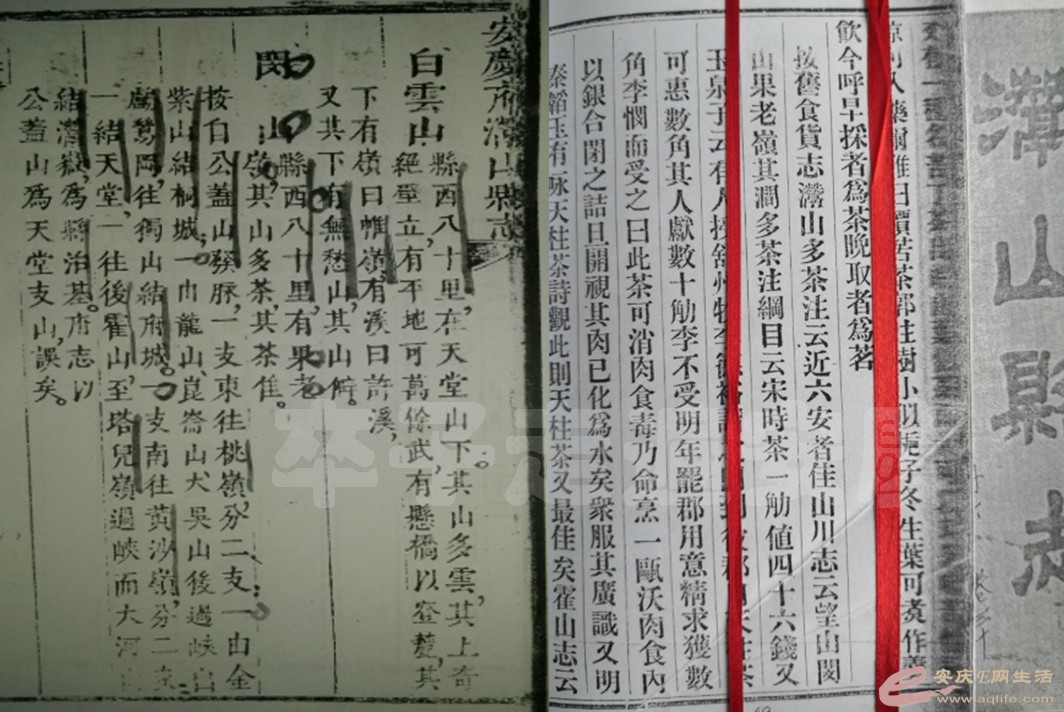 安慶府潛山縣志
白雲山 縣西八十里,在天堂山下。其山多雲,其上奇
絕壁立,有平地可萬餘武,有懸橋以登,麓其
下有嶺曰帷嶺,有溪曰許溪,
又其下有無愁山,其山僻。
閔山 縣西八十里,有果老
嶺,其山多茶,其茶佳。
按白公蓋山發脈,一支東往桃嶺,分二支,一由金
紫山結桐城;一由龍山,崑崙山犬吳山後過峽自
往獨山結府城。一支南往黃沙嶺,分二支
一結天堂,一往後霍山至塔兒嶺過峽而大河
結潛嶽,為縣治基。府志以
公蓋山為天堂支山,誤矣。
潛山縣志
爾雅曰檟苦茶郭註樹小似梔子冬生葉可煮作
飲今呼早採者爲茶晚取者爲茗
按舊食貨志灊山多茶注云近六安者佳山川志云望山閔
山果老嶺其澗多茶注綱目云宋時茶一觔値四十六錢又
玉泉子云有人授舒州牧李
可惠數角其人獻數十觔李不受明年罷郡用意精求獲數
角李憫而受之曰此茶可消肉食毒乃命烹一甌沃肉食內
以銀合閉之詰旦開視其肉已化爲水矣衆服其廣識又明
秦韜玉有詠天柱茶詩觀此則天柱茶又最佳矣霍山志云
安庆E网生活
www.aqlife.com